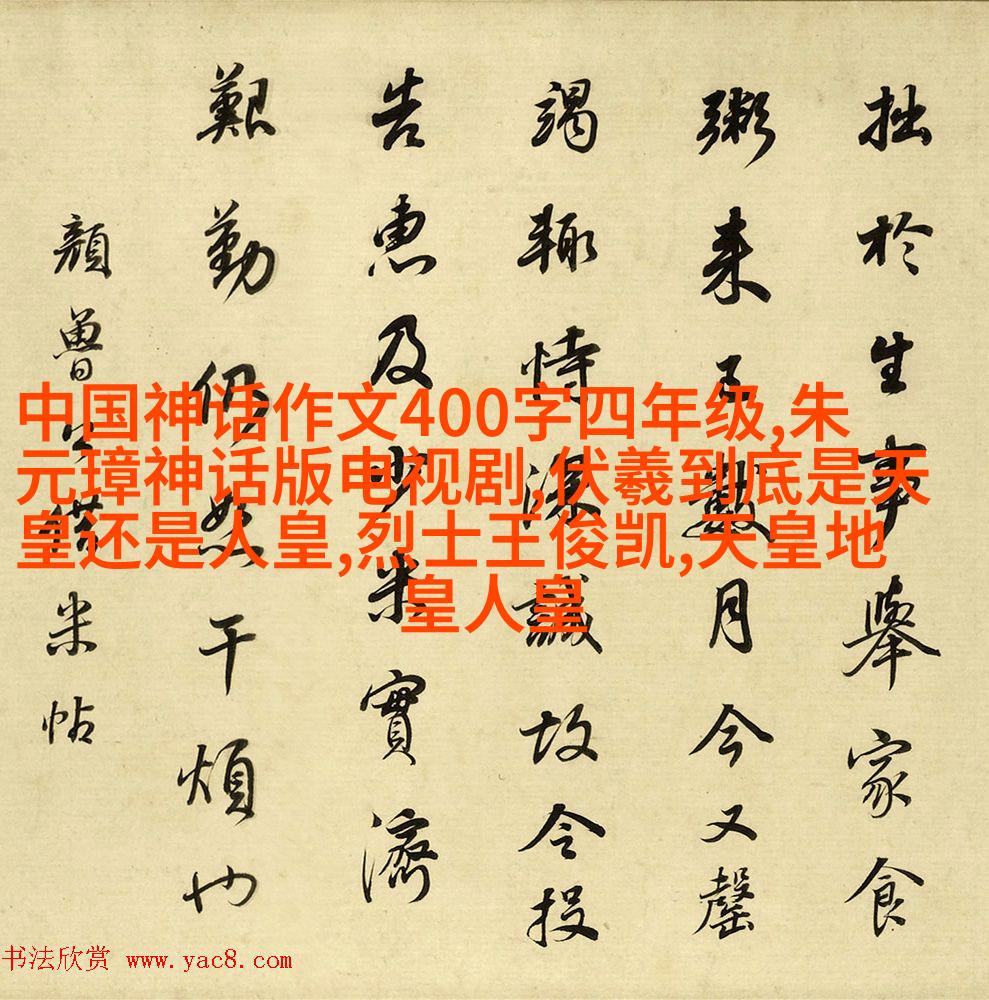 拙於生事舉家食
粥来已數月今又罄
竭輙恃深誠故令投
告惠及少米實濟
艱勤仍恕干煩也
顔魯公借米帖
中国神话作文400字四年级,朱
元璋神话版电视剧,伏羲到底是天
皇还是人皇,烈士王俊凯,天皇地
皇人皇
书法欣赏 www.yac8.com